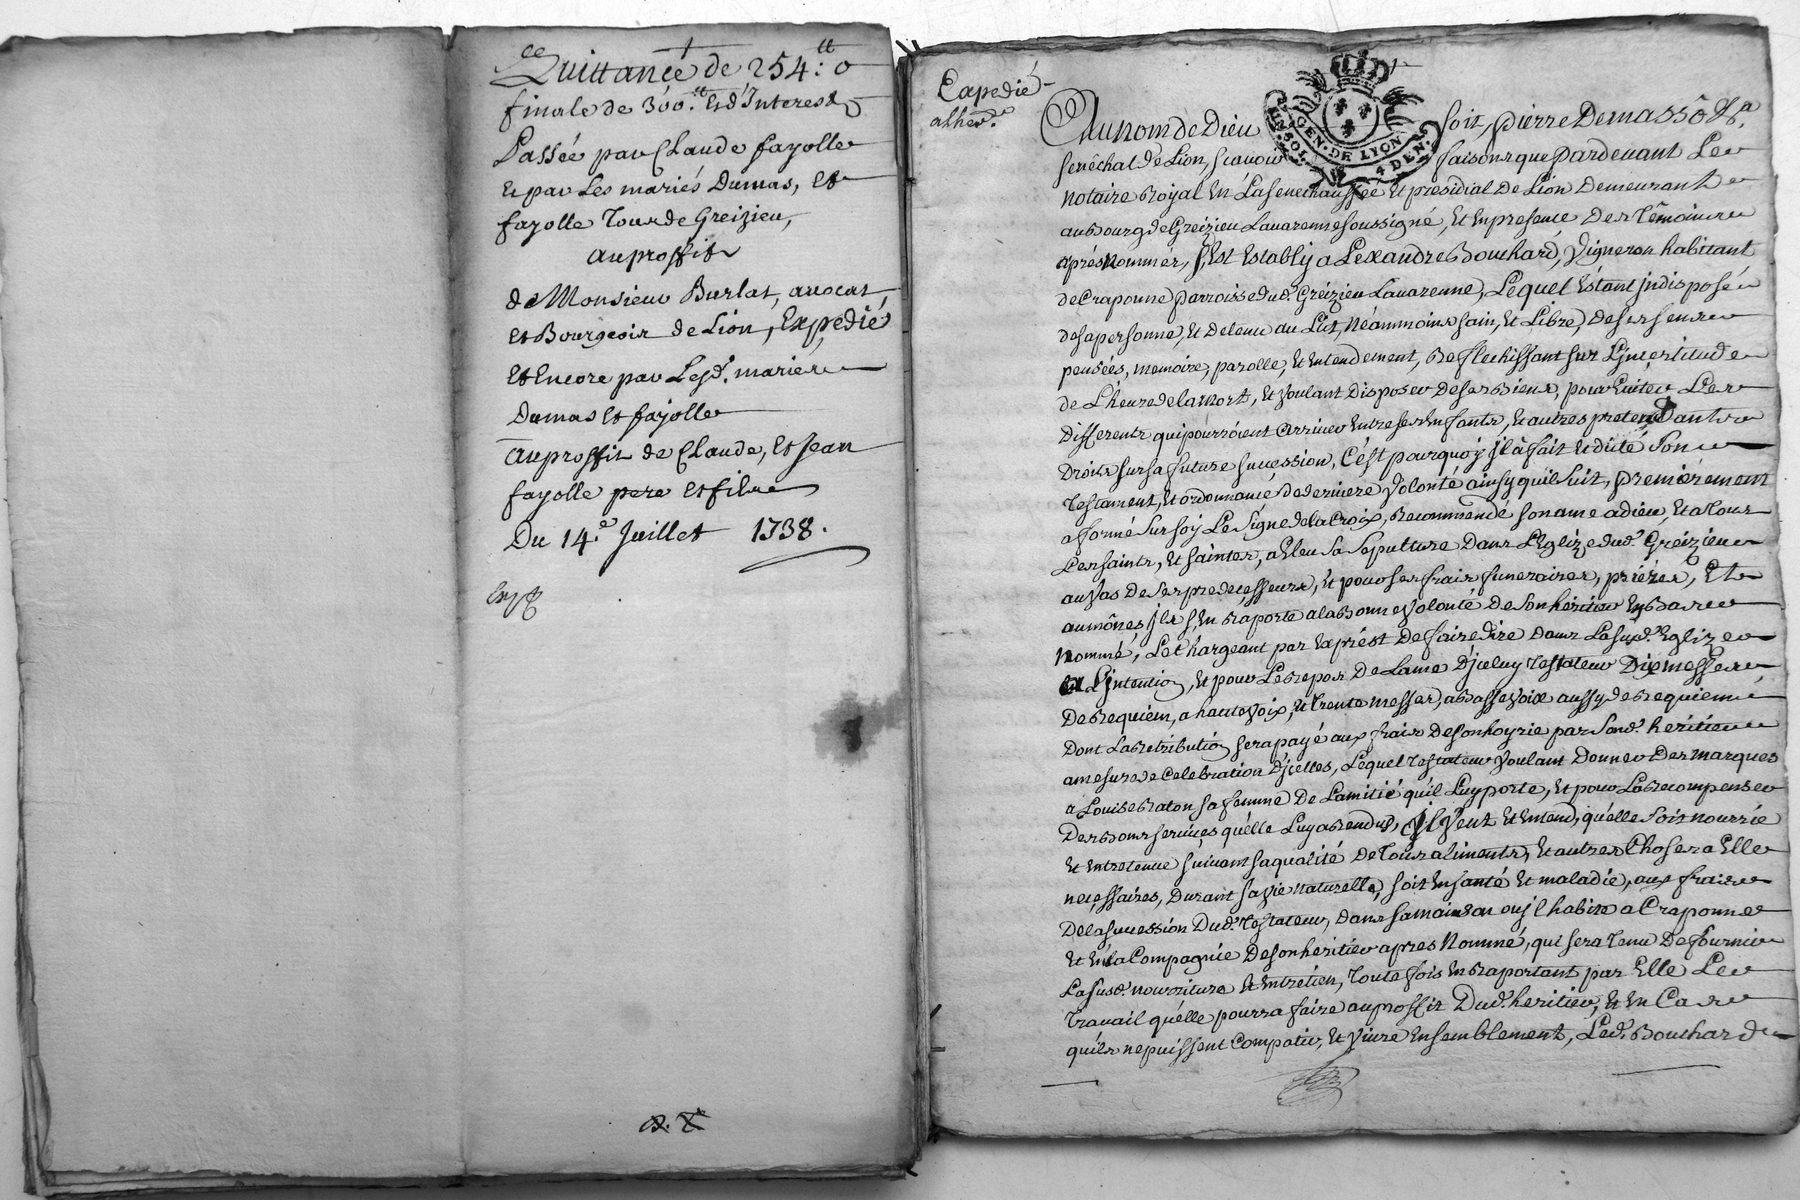 Quittance de 254:tt 0
finale de 300.tt Et d'Interest
Passée par Claude fayolle
Et par Les mariés Dumas, Et
fayolle Tous de Greizieu,
au proffit
de Monsieur Burlat, avocat
Et Bourgeois de Lion, Expedié
Et Encore par Lesd. mariés
Dumas Et fayolle
au proffit de Claude, Et Jean
fayolle pere Et fils
Du 14.e Juillet 1738.
Expedié
a lher.
Au nom de Dieu soit, pierre De masso &a.
GEN. DE LYON
4 DEN.
senéchal de Lion, scavoir faisons que pardevant Le
Notaire Royal En La senechaussée Et presidial de Lion Demeurant
au Bourg de Greizieu Lavarenne soussigné, Et En presence Des Témoins
aprés Nommés, s'Est Establi a Lexandre Bouchard, Vigneron habitant
de Craponne parroisse dud. Gréizieu Lavarenne, Lequel Estant jndisposé
de sa personne, Et detenu au Lit, Néammoins sain, Et Libre, De ses sens
pensées, memoire, parolle, Et Entendement, Reflechissant sur L'jncertitude
de L'heure de la Mort, Et Voulant Disposer De ses Biens, pour Eviter Les
Differents qui pourroient arriver Entre ses Enfants, Et autres pretendants
Droits sur sa future sucession, C'ést pourquoy jl a fait Et dicté Son
Testament, Et ordonnance De derniere Volonté ainsy quil suit, premiérement
a formé sur soy Le signe de la Croix, Recommendé son ame a dieu, Et a Tous
Les saints, Et saintes, a Eleu sa Sepulture Dans L'Eglize dud. Greizieu
au Vas De ses predecesseurs, Et pour ses frais funeraires, priéres, Et
aumônes jl s'En Raporte a la Bonne Volonté De son héritier En Bas
Nommé, Le Chargeant par Exprést De faire dire Dans La susd. Eglize
a L'jntention, Et pour Le Repos De Lame D'jceluy Testateur Dix messes
De Requiem, a haute Voix, Et Trente messes, a Basse Voix aussy de Requiem
Dont La Retribution sera payé aux frais De son hoyrie par Sond. heritier
a mesure de Celebration D'jcelles, Lequel Testateur Voulant Donner Des marques
a Louise Raton sa femme De Lamitié qu'il Luy porte, Et pour La Recompenser
Des Bons services quélle Luy a Rendus, jl Veut Et Entend, quélle Soit nourrie
Et Entretenue suivant sa qualité De Tous aliments, Et autres Choses a Elle
necessaires, Durant sa vie Naturelle, soit En santé Et maladie, aux frais
De la sucession Dud. Testateur, dans sa maison ou jl habite a Craponne
Et En la Compagnie De son heritier apres Nommé, qui sera Tenu De fournir
La susd. nourriture Et Entretien, Toute fois En Raportant par Elle Le
Travail quélle pourra faire au proffit Dud. heritier, Et En Cas
quils ne puissent Compatir, Et Vivre Ensemblement, Led. Bouchard